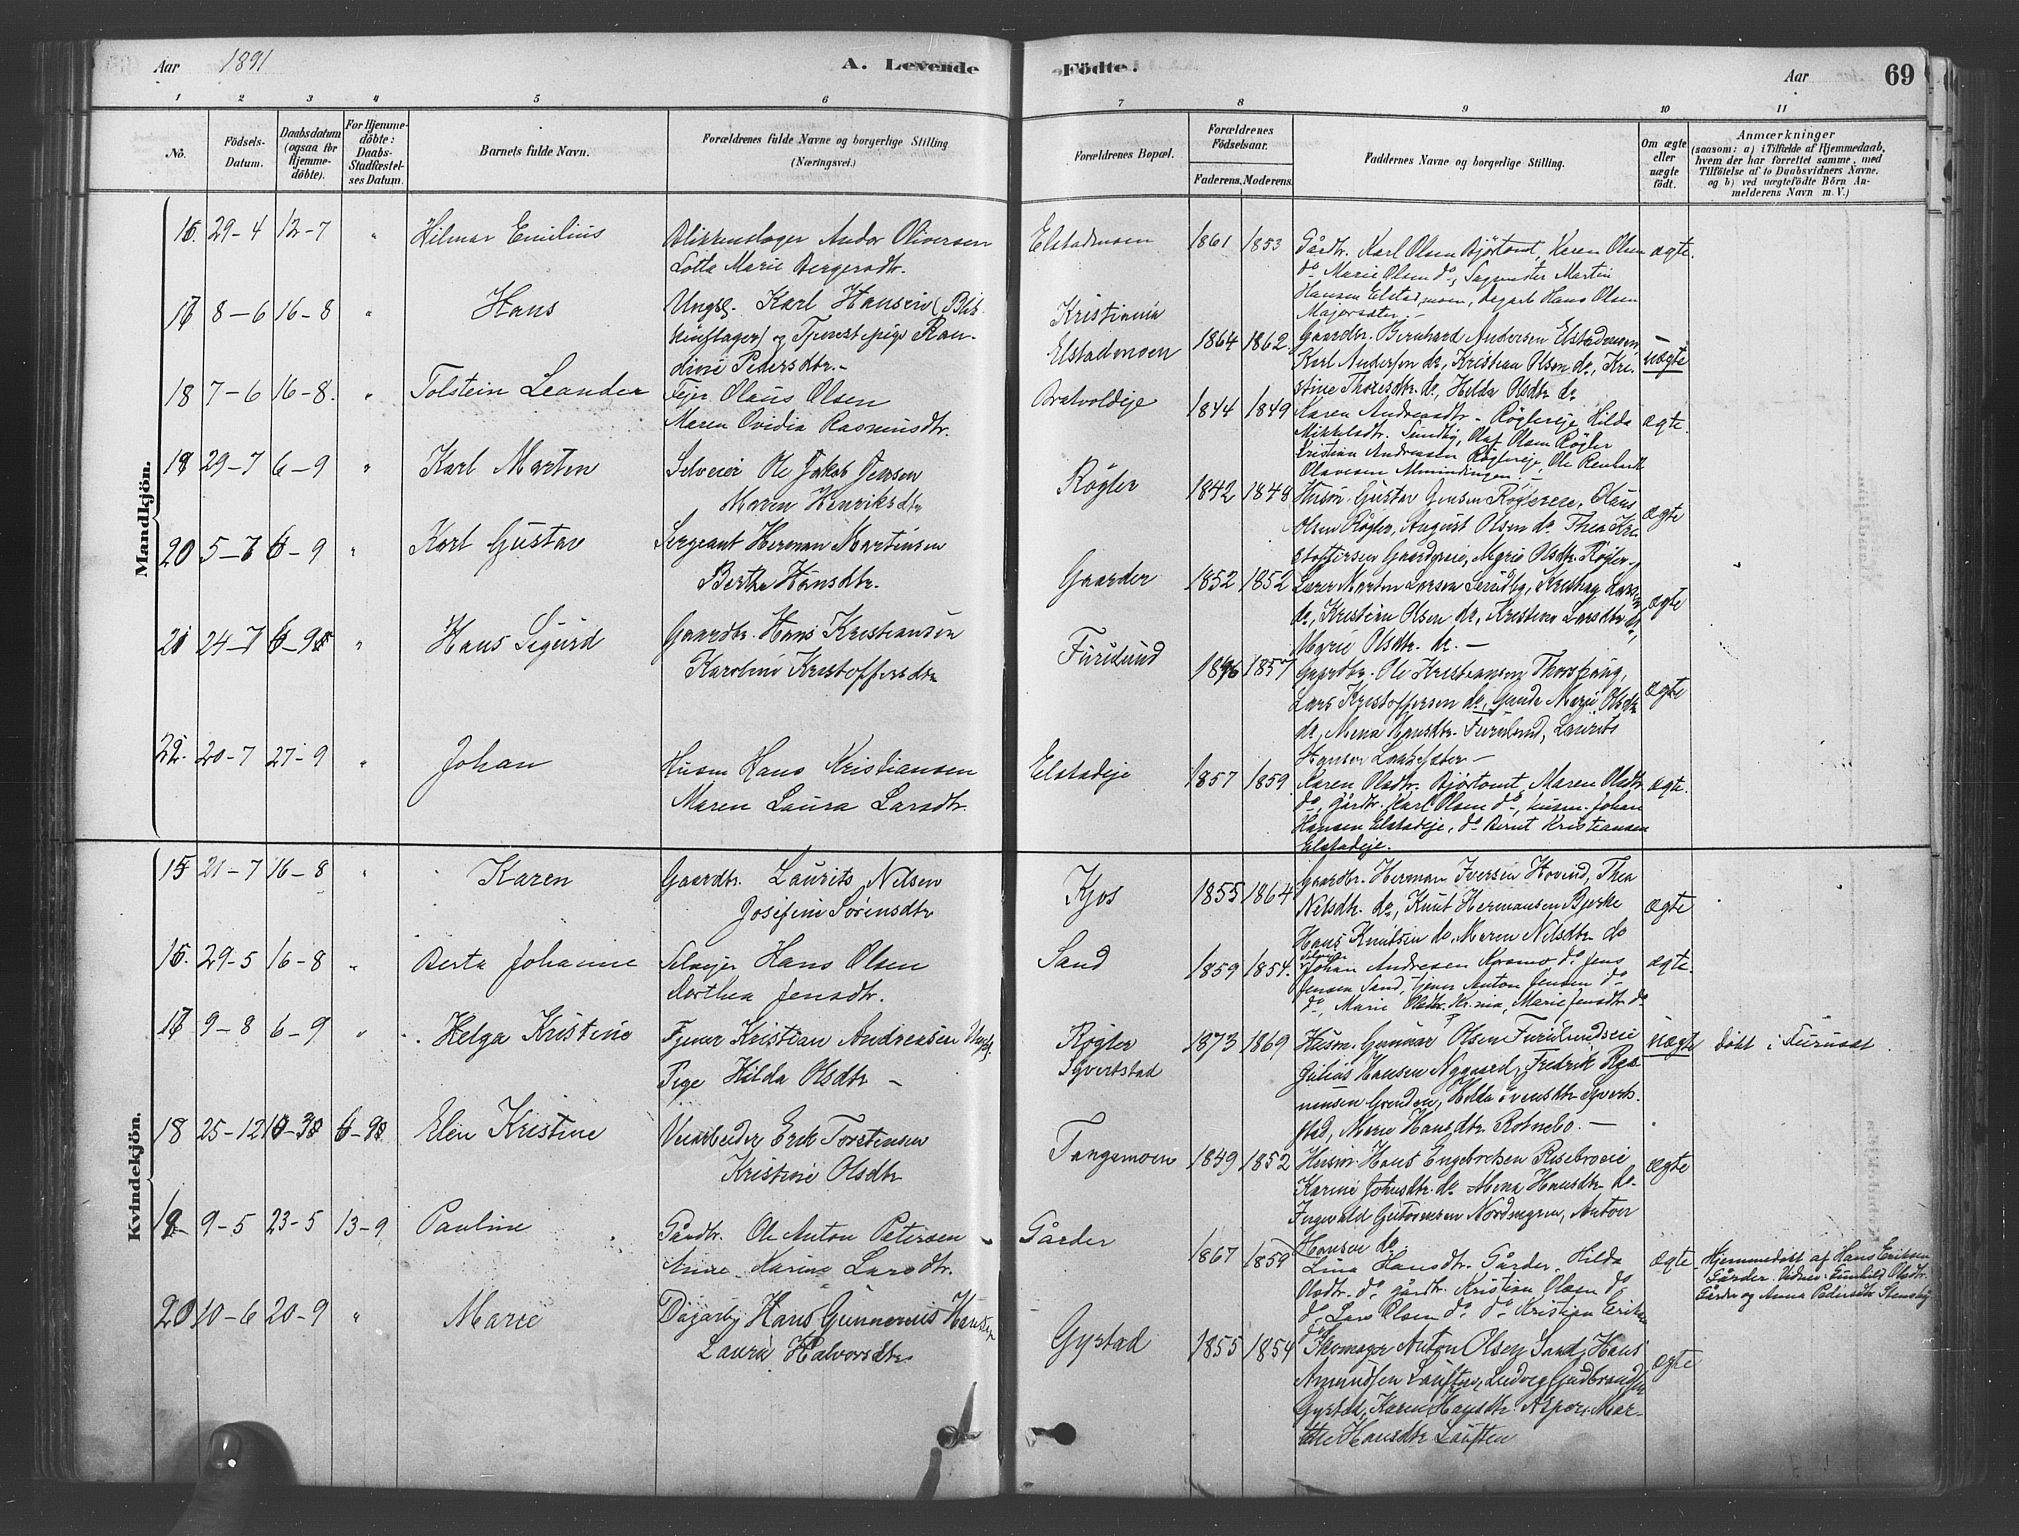 Aar 1891 A. Levende Födte. Aar 69
1 2 3 4 5 6 7 8 9 10 11
No.
Födsels-Datum.
Daabsdatum (ogsaa for Hjemme-döbte).
For Hjemme-döbte: Daabs-Stadfæstel-ses Datum.
Barnets fulde Navn.
Forældrenes fulde Navne og borgerlige Stilling (Næringsvei.)
Forældrenes Bopæl.
Forældrenes Födselsaar.
Faderens. Moderens.
Faddernes Navne og borgerlige Stilling.
Om ægte eller uægte födt.
Anmærkninger
(saasom: a) i Tilfælde af Hjemmedaab,
hvem der har forrettet samme, med
Tilföielse af to Daabsvidners Navne,
og b) ved uægtefödte Börn An-
melderens Navn m. V.)
Mandkjön.
29-4 12-7 " Hilmar Emilius
Blikkenslager Andor Oliversen
Lotta Marie Bergersdtr.
Elstadmoen 1861 1853
Gårdbr. Karl Olsen Bjørtomt, Karen Olsen
do Marie Olsen do, Sagmester Martin
Hansen Elstadmoen, Dagarb Hans Olsen
Majorsæter.
ægte.
8-6 16-8 " Hans
Ungk. Karl Hansen (Blik-
kenslager) og Tjenestepige Ran-
dine Pedersdtr.-
Kristiania
Elstadmoen 1864 1862
Gaardbr. Bernhard Andersen Elstadmoen,
Karl Andersen do, Kristian Olsen do, Kri-
stine Thorisdtr. do, Helda Olsdtr do
uægte
18 7-6 16-8. " Tolstein Leander
Fejer Olaus Olsen
Maren Ovidia Rasmusdtr.
Bratvoldeje 1844 1849
Karen Andreasdtr. Røglereje Hilda
Mikkelsdtr. Sundby, Olaf Olsen Røgler
Kristian Andreasen Røglereje, Ole Reinhardt
Olavesen Almindingen.-
ægte.
29-7 6-9 " Karl Martin
Selveier Ole Jakob Jensen
Maren Henriksdtr
Røgler 1842 1848
Husm. Gustav Jensen Røglereie, Olaus
Olsen Røgler, August Olsen do Thea Kri-
stoffersen Gaardereie, Marie Olsdtr. Røgler
ægte
20 5-7 6-9 " Karl Gustav
Sergeant Herman Martinsen
Berthe Hansdtr.
Gaarder 1852 1852
Lærer Morten Larsen Sundby, Larsen
do, Kristian Olsen do, Kristine Larsdtr do,
Marie Olsdtr. do.-
ægte
21 24-7 " Hans Sigurd
Gaardbr. Hans Kristiansen
Karoline Kristoffersdtr
Furulund 1857
Gaardbr. Ole Kristiansen
Lars Kristoffersen do, Marie Olsdtr
do, Mena Hansdtr. Furulund, Laurits
Hansen
ægte
22. 20-7 27-9 " Johan
Husm Hans Kristiansen
Maren Laura Larsdtr.
Elstadeje 1857 1859
Karen Olsdtr. Bjørtomt, Maren Olsdtr
do, gårdbr. Karl Olsen do, husm. Johan
Hansen Elstadeje, do Bernt Kristiansen
Elstadeje.
ægte.
Kvindekjön.
21-7 16-8 " Karen
Gaardbr. Laurits Nilsen
Josefine Sørensdtr
Kjos 1855 1864
Gaardbr. Herman Iversen Hovind, Thea
Nilsdtr. do, Knut Hermansen Bjerke
Hans Knutsen do, Maren Nilsdtr do
ægte
29-5 16-8 " Berta Johanne
Selvejer Hans Olsen
Marthea Jensdtr.
Sand 1859 1854.
Selvejer Johan Andresen Korsmo do Jens
Jensen Sand, Tjener Anton Jensen do
do, Marie Olsdtr. Kr.nia, Marie Jensdtr. do
ægte.
9-8 6-9 " Helga Kristine
Tjener Kristian Andreasen Ungk.
Pige Hilda Olsdtr -
Røgler
Syvertstad 1873 1869
Husm. Gunnar Olsen Furulundseie
Julius Hansen Nygaard, Fredrik Ras-
mussen Grenden, Helda Evensdtr Syverts-
stad, Marie Hansdtr. Rotnebo.-
uægte døbt i Furuset.
18 25-12 Elen Kristine
Veiarbeider Erik Torstensen
Kristine Olsdtr
Tangemoen 1849 1852
Husm. Hans Engebretsen Risebroeie
Karine Johnsdtr. do Mena Hansdtr do.
Ingevald Gutormsen Nordengen, Antver
Hansen do
ægte
9-5 23-5 13-9 Pauline
Gårdbr. Ole Anton Petersen
Anne Karine Larsdtr.
Gårder 1867 1859
Lina Hansdtr. Gårder, Hilda
Olsdtr. do gårdbr. Kristian Olsen do
do, Lars Olsen do do Kristian Eriksen
do
ægte
Hjemmedøbt af Hans Eriksen
Gårder. Vidner: Gunhild Olsdtr.
Gårder og Anna Pedersdtr Stensby
20 10-6 20-9 " Marie
Dagarb. Hans Gunnerius Hansen
Laura Halvorsdtr
Gystad 1855 1854
Skomager Anton Olsen Sand, Hans
Amundsen Ludvig Gudbrandsen
Gystad, Karen Hansdtr. Aspor, Mar-
the Hansdtr
ægte